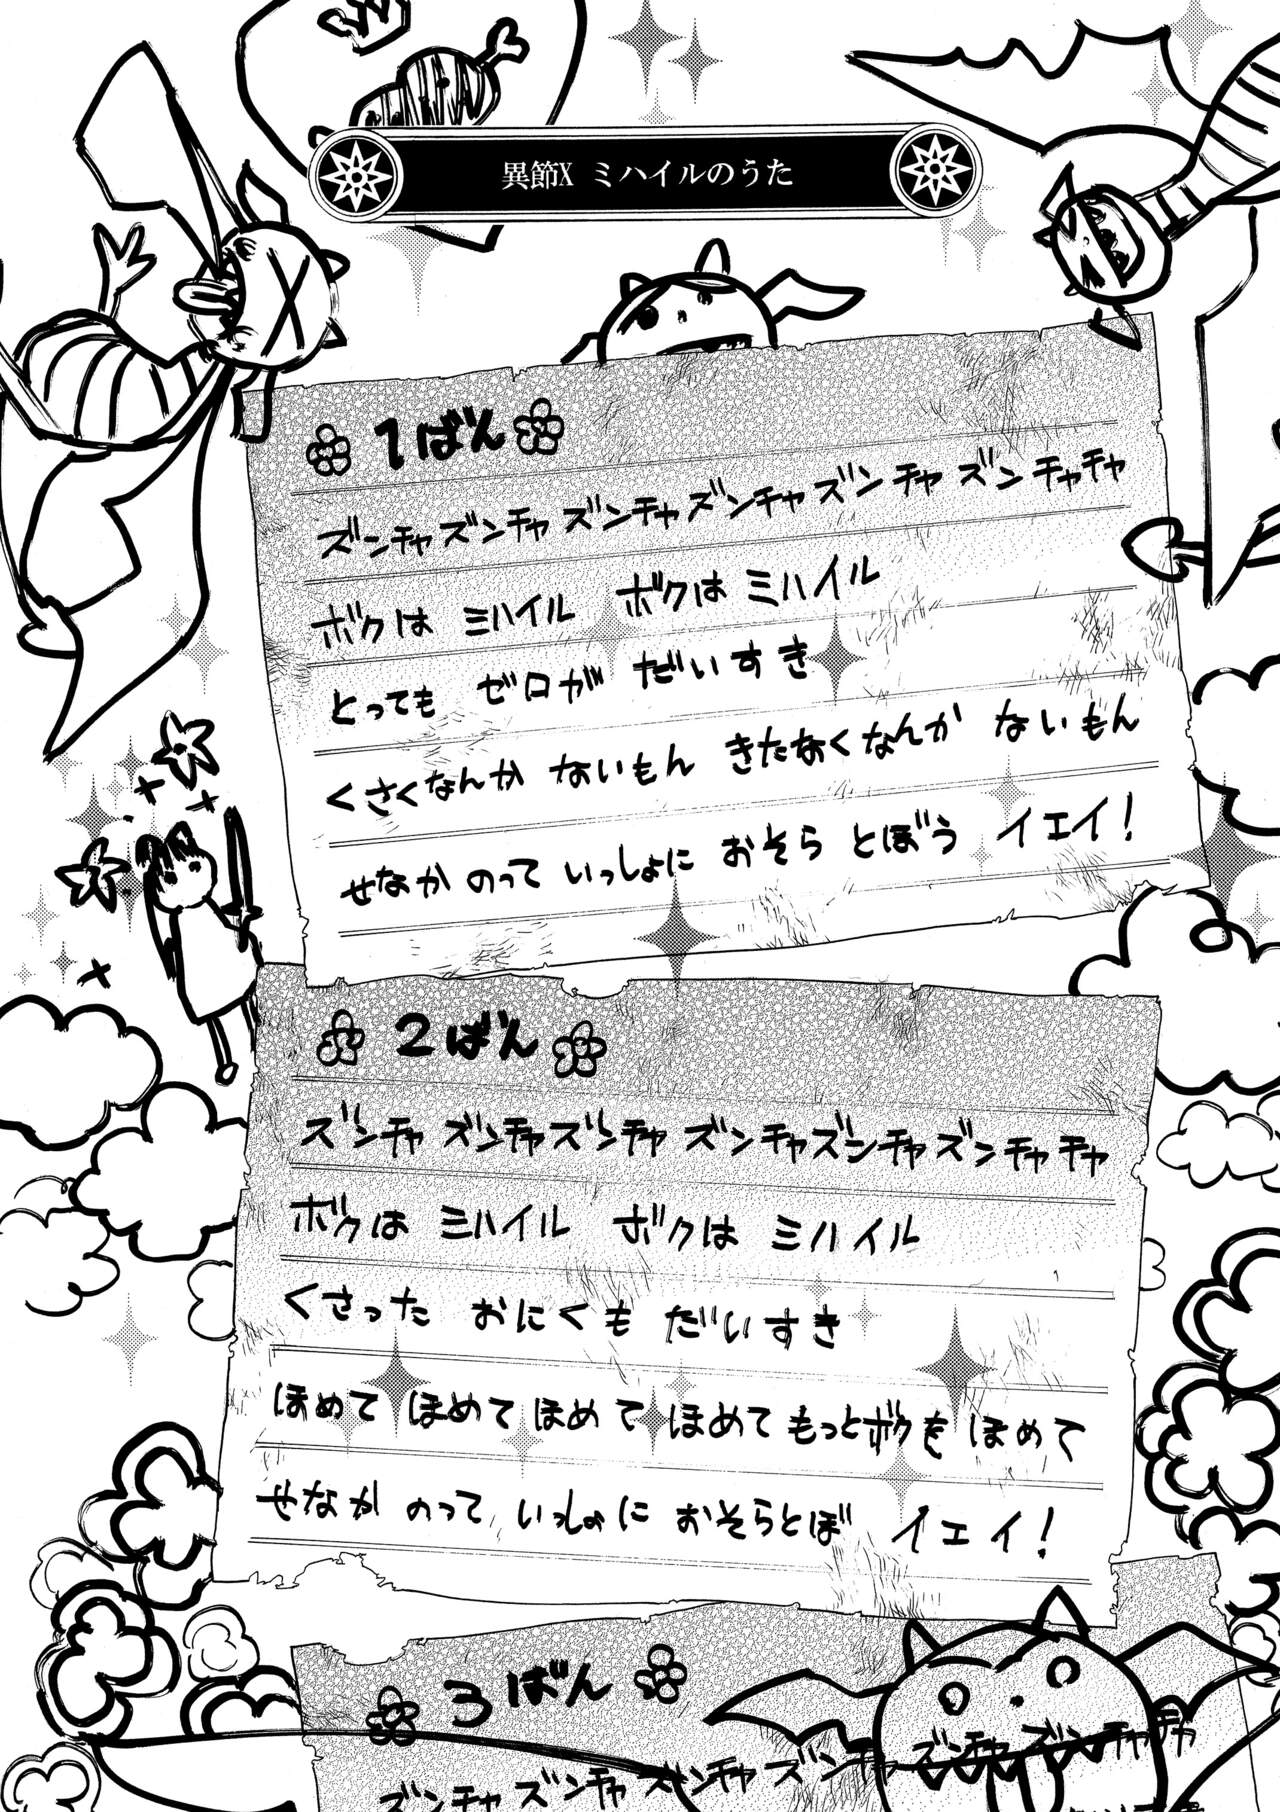 異節X ミハイルのうた
1ばん
ズンチャズンチャ ズンチャズンチャズンチャ ズンチャチャ
ボクは ミハイル ボクは ミハイル
とっても ゼロが だいすき
くさくなんか ないもん きたなくなんか ないもん
せなか のって いっしょに おそら とぼう イエイ!
2ばん
ズンチャ ズンチャズンチャ ズンチャズンチャズンチャチャ
ボクは ミハイル ボクは ミハイル
くさった おにくも だいすき
ほめて ほめて ほめて ほめて もっとボクを ほめて
せなか のって いっしょに おそらとぼ イエイ!
3ばん
ズンチャズンチャズンチャズンチャ ズンチャズンチャチャ